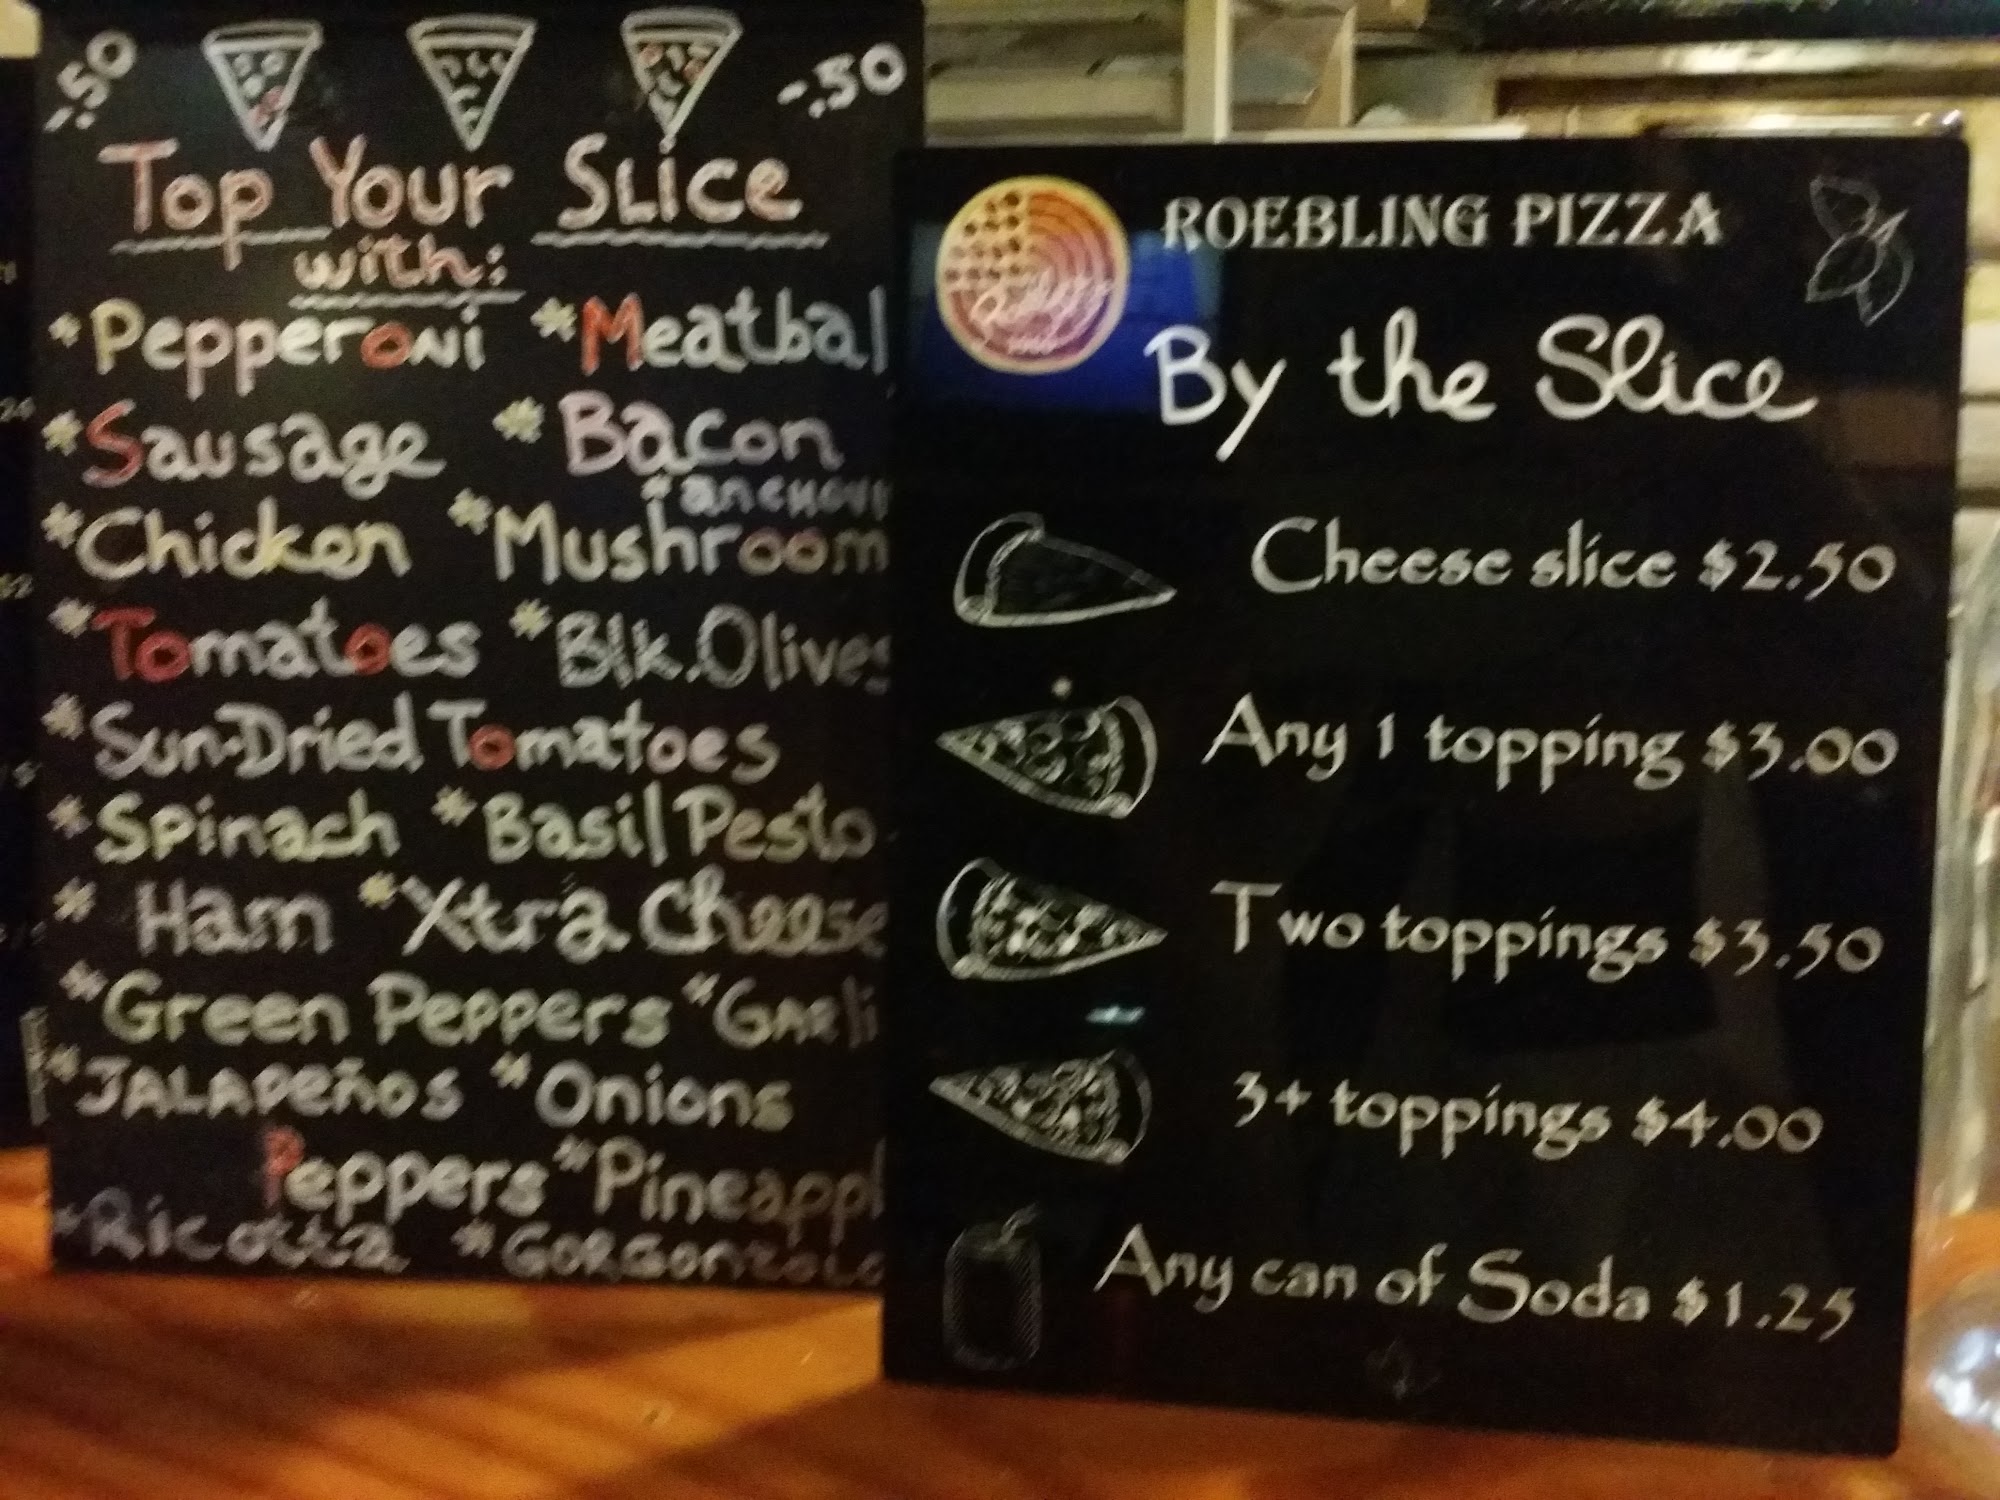 -.50 -.50
Top Your Slice
with:
*Pepperoni *Meatbal
*Sausage *Bacon
*anchov
*Chicken *Mushroom
*Tomatoes *Blk.Olives
*Sun-Dried Tomatoes
*Spinach *Basil Pesto
* Ham *Xtra Cheese
*Green Peppers *Garli
*JALAPEñOS *Onions
Peppers *Pineappl
*Ricotta *GORGonzola
ROEBLING PIZZA
By the Slice
Cheese slice $2.50
Any 1 topping $3.00
Two toppings $3.50
3+ toppings $4.00
Any can of Soda $1.25